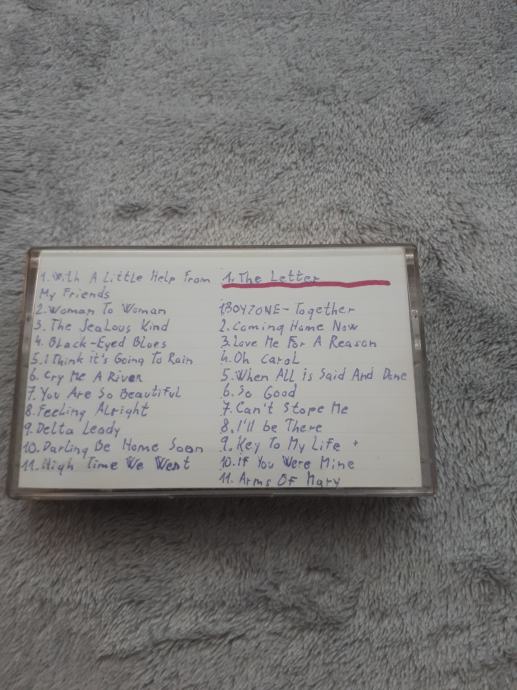 1. With A Little Help From
My Friends
2. Woman To Woman
3. The Jealous Kind
4. Black-Eyed Blues
5. I Think it's Going To Rain
6. Cry Me A River
7. You Are So Beautiful
8. Feeling Alright
9. Delta Leady
10. Darling Be Home Soon
11. High Time We Went
1. The Letter
BOYZONE - Together
2. Coming Home Now
3. Love Me For A Reason
4. Oh Carol
5. When All is Said And Done
6. So Good
7. Can't Stope Me
8. I'll be There
9. Key To My Life +
10. If You Were Mine
11. Arms Of Mary